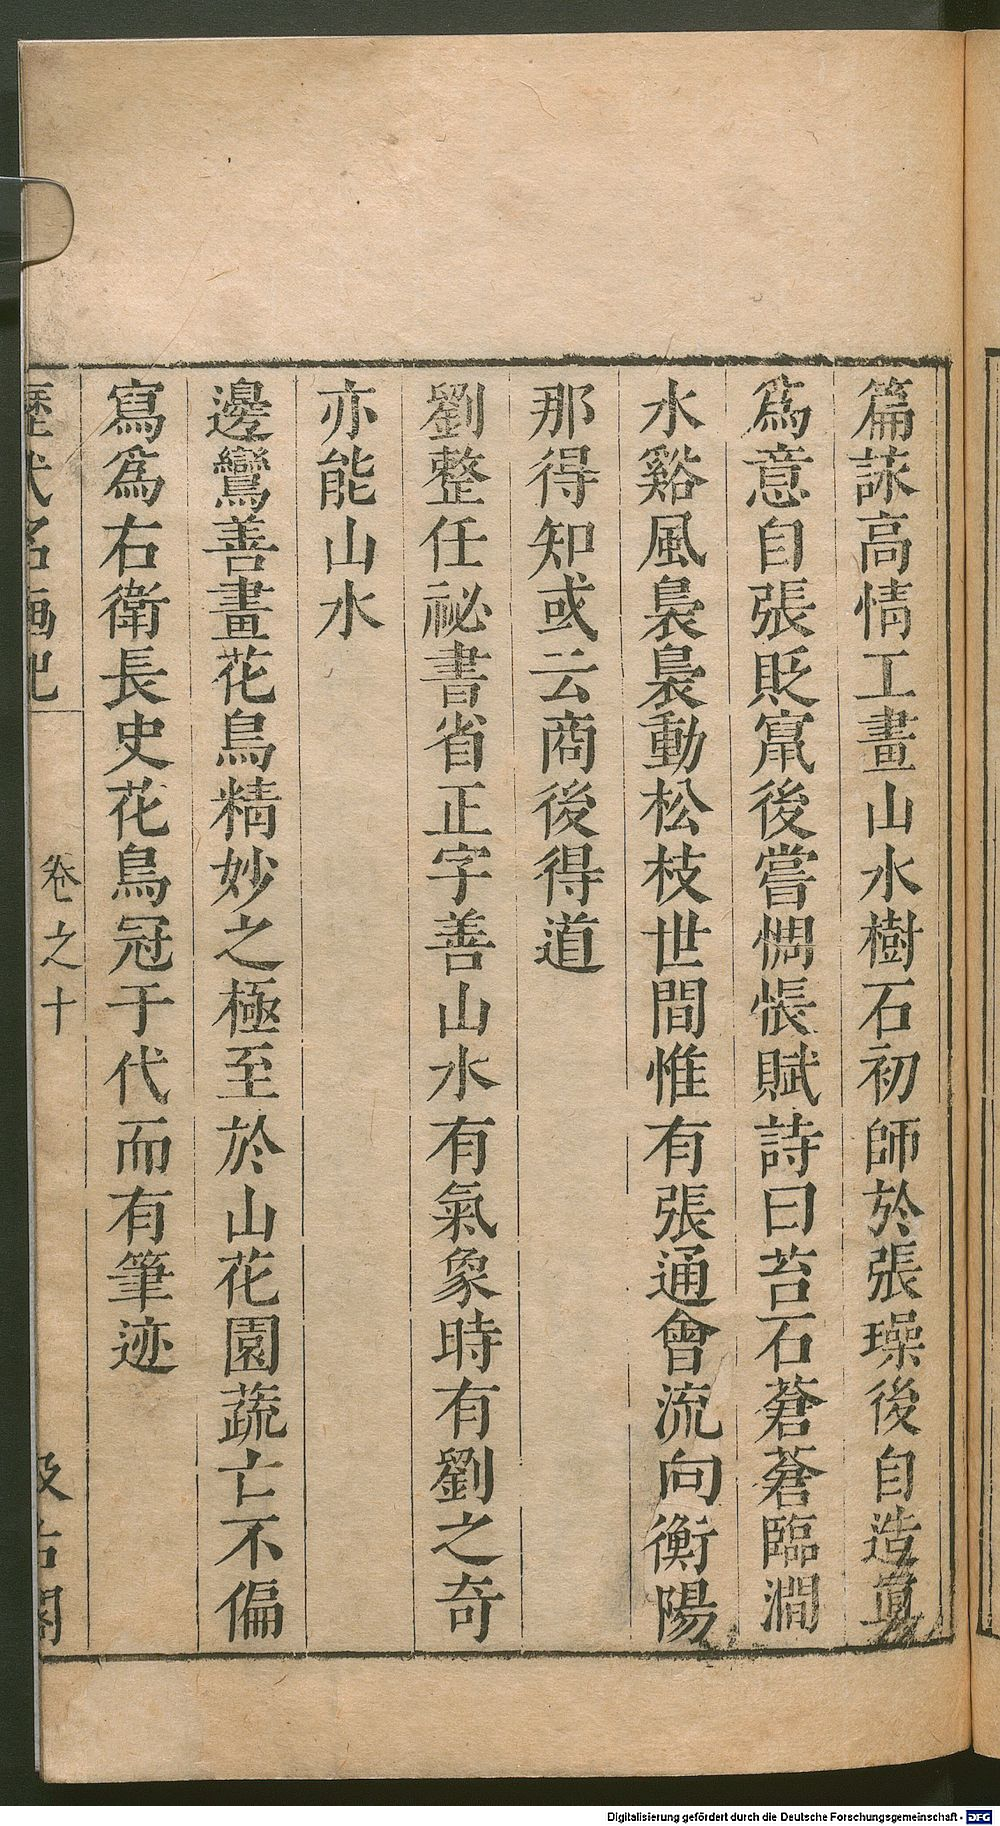 篇詠高情工畫山水樹石初師於張璪後自造眞
爲意自張貶竄後嘗惆悵賦詩曰苔石蒼蒼臨澗
水谿風裊裊動松枝世間惟有張通會流向衡陽
那得知或云商後得道
劉整任祕書省正字善山水有氣象時有劉之奇
亦能山水
邊鸞善畫花鳥精妙之極至於山花園蔬亡不偏
寫爲右衛長史花鳥冠于代而有筆迹
歷代名画記 卷之十 汲古閣
Digitalisierung gefördert durch die Deutsche Forschungsgemeinschaft - DFG